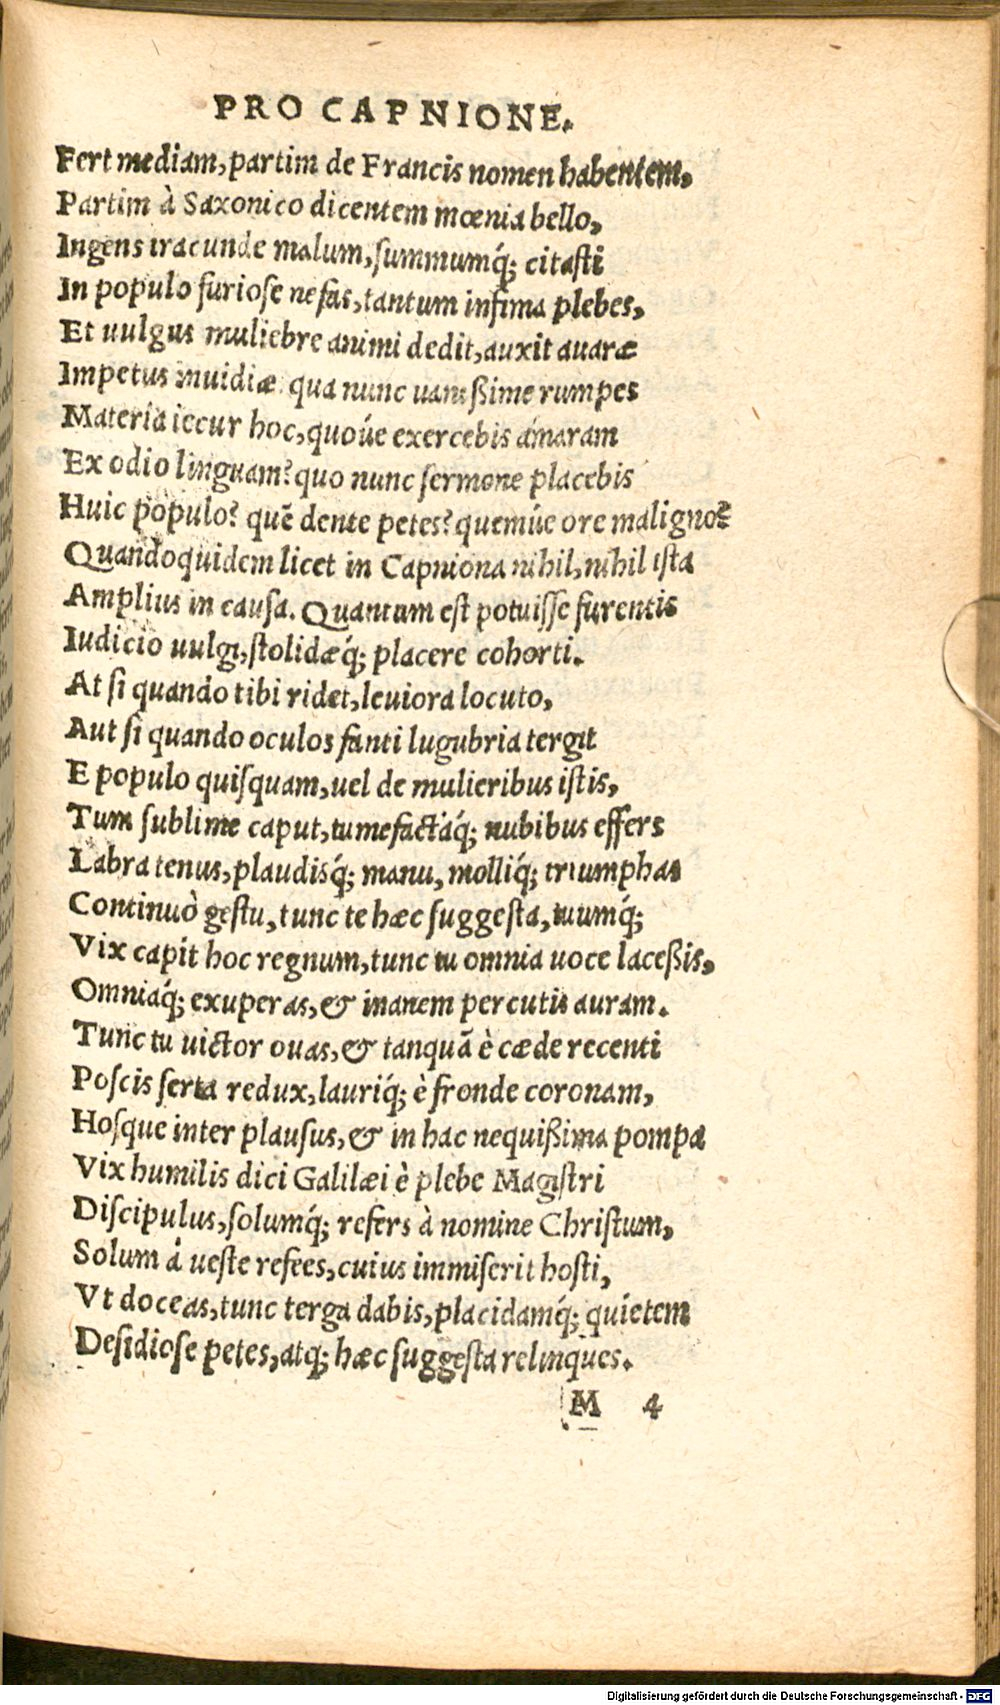 PRO CAPNIONE.
Fert mediam, partim de Francis nomen habentem,
Partim à Saxonico dicentem mœnia bello,
Ingens iracunde malum, ſummumq́; citaſti
In populo furioſe nefas, tantum infima plebes,
Et uulgus muliebre animi dedit, auxit auaræ
Impetus inuidiæ qua nunc uanißime rumpes
Materia iecur hoc, quoúe exercebis amaram
Ex odio linguam? quo nunc ſermone placebis
Huic populo? quē dente petes? quemúe ore maligno?
Quandoquidem licet in Capniona nihil, nihil iſta
Amplius in cauſa. Quantum eſt potuiſſe furentis
Iudicio uulgi, ſtolidæq́; placere cohorti.
At ſi quando tibi ridet, leuiora locuto,
Aut ſi quando oculos fanti lugubria tergit
E populo quiſquam, uel de mulieribus iſtis,
Tum ſublime caput, tumefactáq́; nubibus effers
Labra tenus, plaudisq́; manu, molliq́; triumphas
Continuò geſtu, tunc te hæc ſuggeſta, tuumq́;
Vix capit hoc regnum, tunc tu omnia uoce laceßis,
Omniaq́; exuperas, & inanem percutis auram.
Tunc tu uictor ouas, & tanquā è cæde recenti
Poſcis ſerta redux, lauriq́; è fronde coronam,
Hoſque inter plauſus, & in hac nequißima pompa
Vix humilis dici Galilæi è plebe Magiſtri
Diſcipulus, ſolumq́; refers à nomine Chriſtum,
Solum à ueſte refees, cuius immiſerit hoſti,
Vt doceas, tunc terga dabis, placidamq́; quietem
Deſidioſe petes, atq; hæc ſuggeſta relinques.
M 4
Digitalisierung gefördert durch die Deutsche Forschungsgemeinschaft - DFG